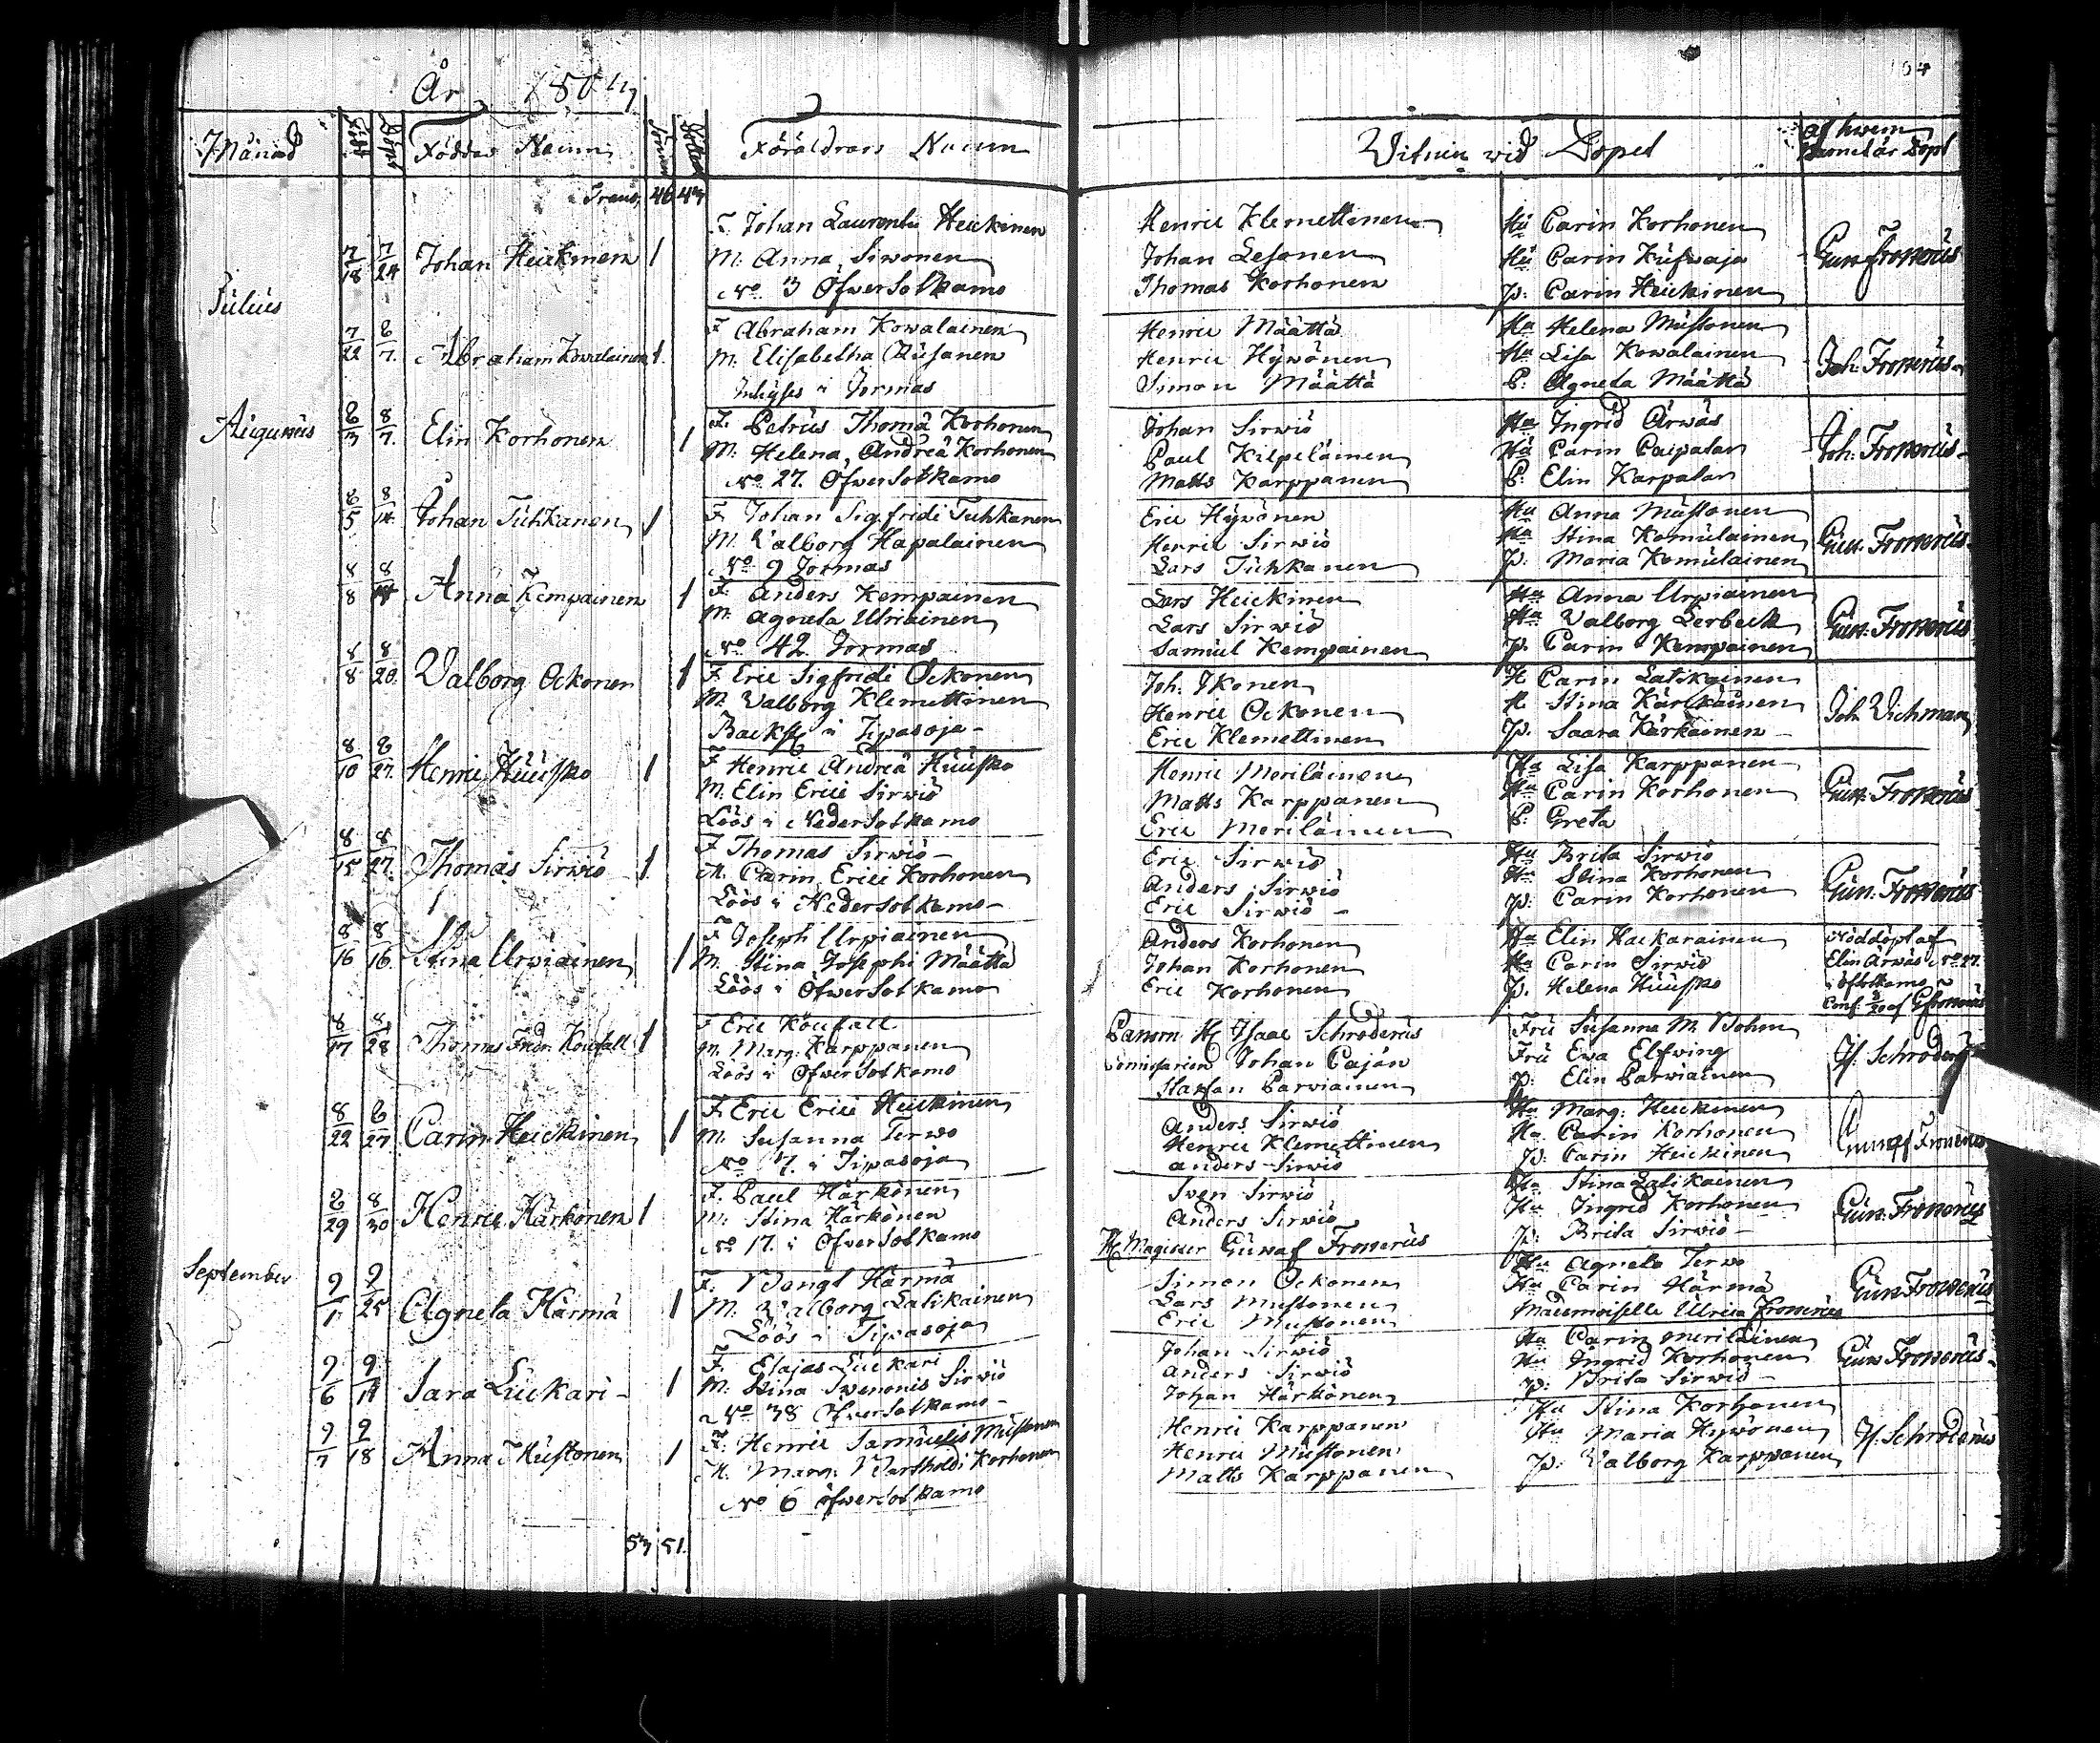 År 1804
104
Månad Född Döpt Föddas Namn Söner Döttrar Föräldrars Namn Vitnen vid Dopet af hwem Barnet är Döpt
Trans. 46 43
7/18 7/24 Johan Heickinen 1
F. Johan Laurentii Heickinen
M. Anna Siwonen
No 3 Öfwersotkamo
Henric Klemettinen
Johan Lesonen
Thomas Korhonen
Hu Carin Korhonen
Hu Carin
p. Carin Heickinen
Gust. Froserus
Julius
7/22 8/7 Abraham Kowalainen 1.
F Abraham Kowalainen
M. Elisabetha
Inhyses i Jormas
Henric Määttä
Henric Hÿwönen
Simon Määttä
Hu Helena Mustonen
Hu Lisa Kowalainen
P. Agneta Määttä
Joh. Froserus
Augustus
8/3 8/7. Elin Korhonen 1
F. Petrus Thomæ Korhonen
M. Helena Andreæ Korhonen
No 27. Öfwersotkamo
Johan Sirwiö
Paul Kilpeläinen
Matts Karppanen
Hu Ingrid Ärwäs
Hu Carin
P. Elin
Joh. Froserus
8/5 8/14 Johan Tuhkanen 1
F Johan Sigfridi Tuhkanen
M. Valborg Hapalainen
No 9 Jormas
Eric Hÿwönen
Henric Sirwiö
Lars Tuhkanen
Hu Anna Mustonen
Hu Stina Komulainen
p. Maria Komulainen
Gust. Froserus
8/8 8/14 Anna Kempainen 1
F. Anders Kempainen
M. Agneta Uriainen
No 42 Jormas
Lars Heickinen
Lars Sirwiö
Samuel Kempainen
Hu Anna Urpiainen
Hu Valborg Lerbeck
p. Carin Kempainen
Gust. Froserus
8/8 8/20. Valborg Ockonen 1
F. Eric Sigfridi Ockonen
M. Valborg Klemettinen
Backst i Tipasoja
Joh. Ikonen
Henric Ockonen
Eric Klemettinen
H Carin Latikainen
H Stina Kärkäinen
p. Saara Kärkäinen
Joh Wichman
8/10 8/27. Henric Huusko 1
F Henric Andreæ Huusko
M. Elin Erici Sirwiö
Löös i Nedersotkamo
Henric Meriläinen
Matts Karppanen
Eric Meriläinen
Hu Lisa Karppanen
Hu Carin Korhonen
P. Greta
Gust. Froserus
8/15 8/27. Thomas Sirwiö 1
F Thomas Sirwiö
M. Carin Erici Korhonen
Löös i Nedersotkamo
Eric Sirwiö
Anders Sirwiö
Eric Sirwiö
Hu Brita Sirwiö
Hu Stina Korhonen
p. Carin Korhonen
Gust. Froserus
8/16 8/16. Stina Urpiainen 1
F Joseph Urpiainen
M. Stina Josephi Määttä
Löös i Öfwersotkamo
Anders Korhonen
Johan Korhonen
Eric Korhonen
Hu Elin Hackarainen
Hu Carin Sirwiö
p. Helena Huusko
Nöddöpt af
Elin Ärwäs No 27.
i Öfsotkamo
8/17 8/28 Thomas Fredr. Koufall 1
F Eric Koufall
M. Marg: Karppanen
Löös i Öfwersotkamo
H. Isaac Schroderus
Johan Cajan
Staffan Parwiainen
Fru Susanna M. Bohm
Fru Ewa Elfwing
p: Elin Parwiainen
Is. Schroderus
8/22 8/27 Carin Heickinen 1
F. Eric Erici Heickinen
M. Susanna Terwo
No 7. i Tipasoja
Anders Sirwiö
Henric Klemettinen
Anders Sirwiö
Hu Marg: Heickinen
Hu Carin Korhonen
p: Carin Heickinen
Gustaf Froserus
8/29 8/30 Henric Härkönen 1
F. Paul Härkönen
M. Stina Härkönen
No 17. i Öfwersotkamo
Sven Sirwiö
Anders Sirwiö
H. Magister Gustaf Froserus
Hu Stina Latikainen
Hu Ingrid Korhonen
p: Brita Sirwiö
Gust: Froserus
September
9/1 9/25 Agneta Härmä 1
F. Bengt Härmä
M. Walborg Latikainen
Löös i Tipasoja
Simon Ockonen
Lars Mustonen
Eric Mustonen
Hu Agneta Terwo
Hu Carin Härmä
Mademoiselle Ulrica Froserus
Gust Froserus
9/6 9/11 Sara Luckari 1
F. Elajas Luckari
M. Stina Swenonis Sirwiö
No 38 Öfwersotkamo
Johan Sirwiö
Anders Sirwiö
Johan Härkönen
Hu Carin Meriläinen
Hu Ingrid Korhonen
p: Brita Sirwiö
Gust Froserus
9/7 9/18 Anna Mustonen 1
F. Henric Samuelis Mustonen
M. Marg: Bartholdi Korhonen
No 6 Öfwersotkamo
Henric Karppanen
Henric Mustonen
Matts Karppanen
Hu Stina Korhonen
Hu Maria Hywönen
p: Valborg Karppanen
Is. Schroderus
53 51.